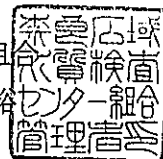 奈良広域
水質検査
センター組合
管理者印